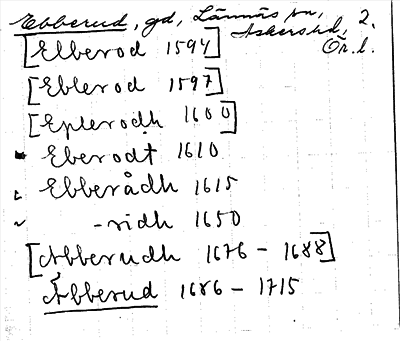 Ebberud, gd, Lännäs sn, 2.
Askers hd, Ör. l.
[Elberod 1594]
[Eblerod 1597]
[Eplerodh 1600]
Eberodt 1610
Ebberådh 1615
-ridh 1650
[Abberudh 1676 - 1688]
Äbberud 1686 - 1715